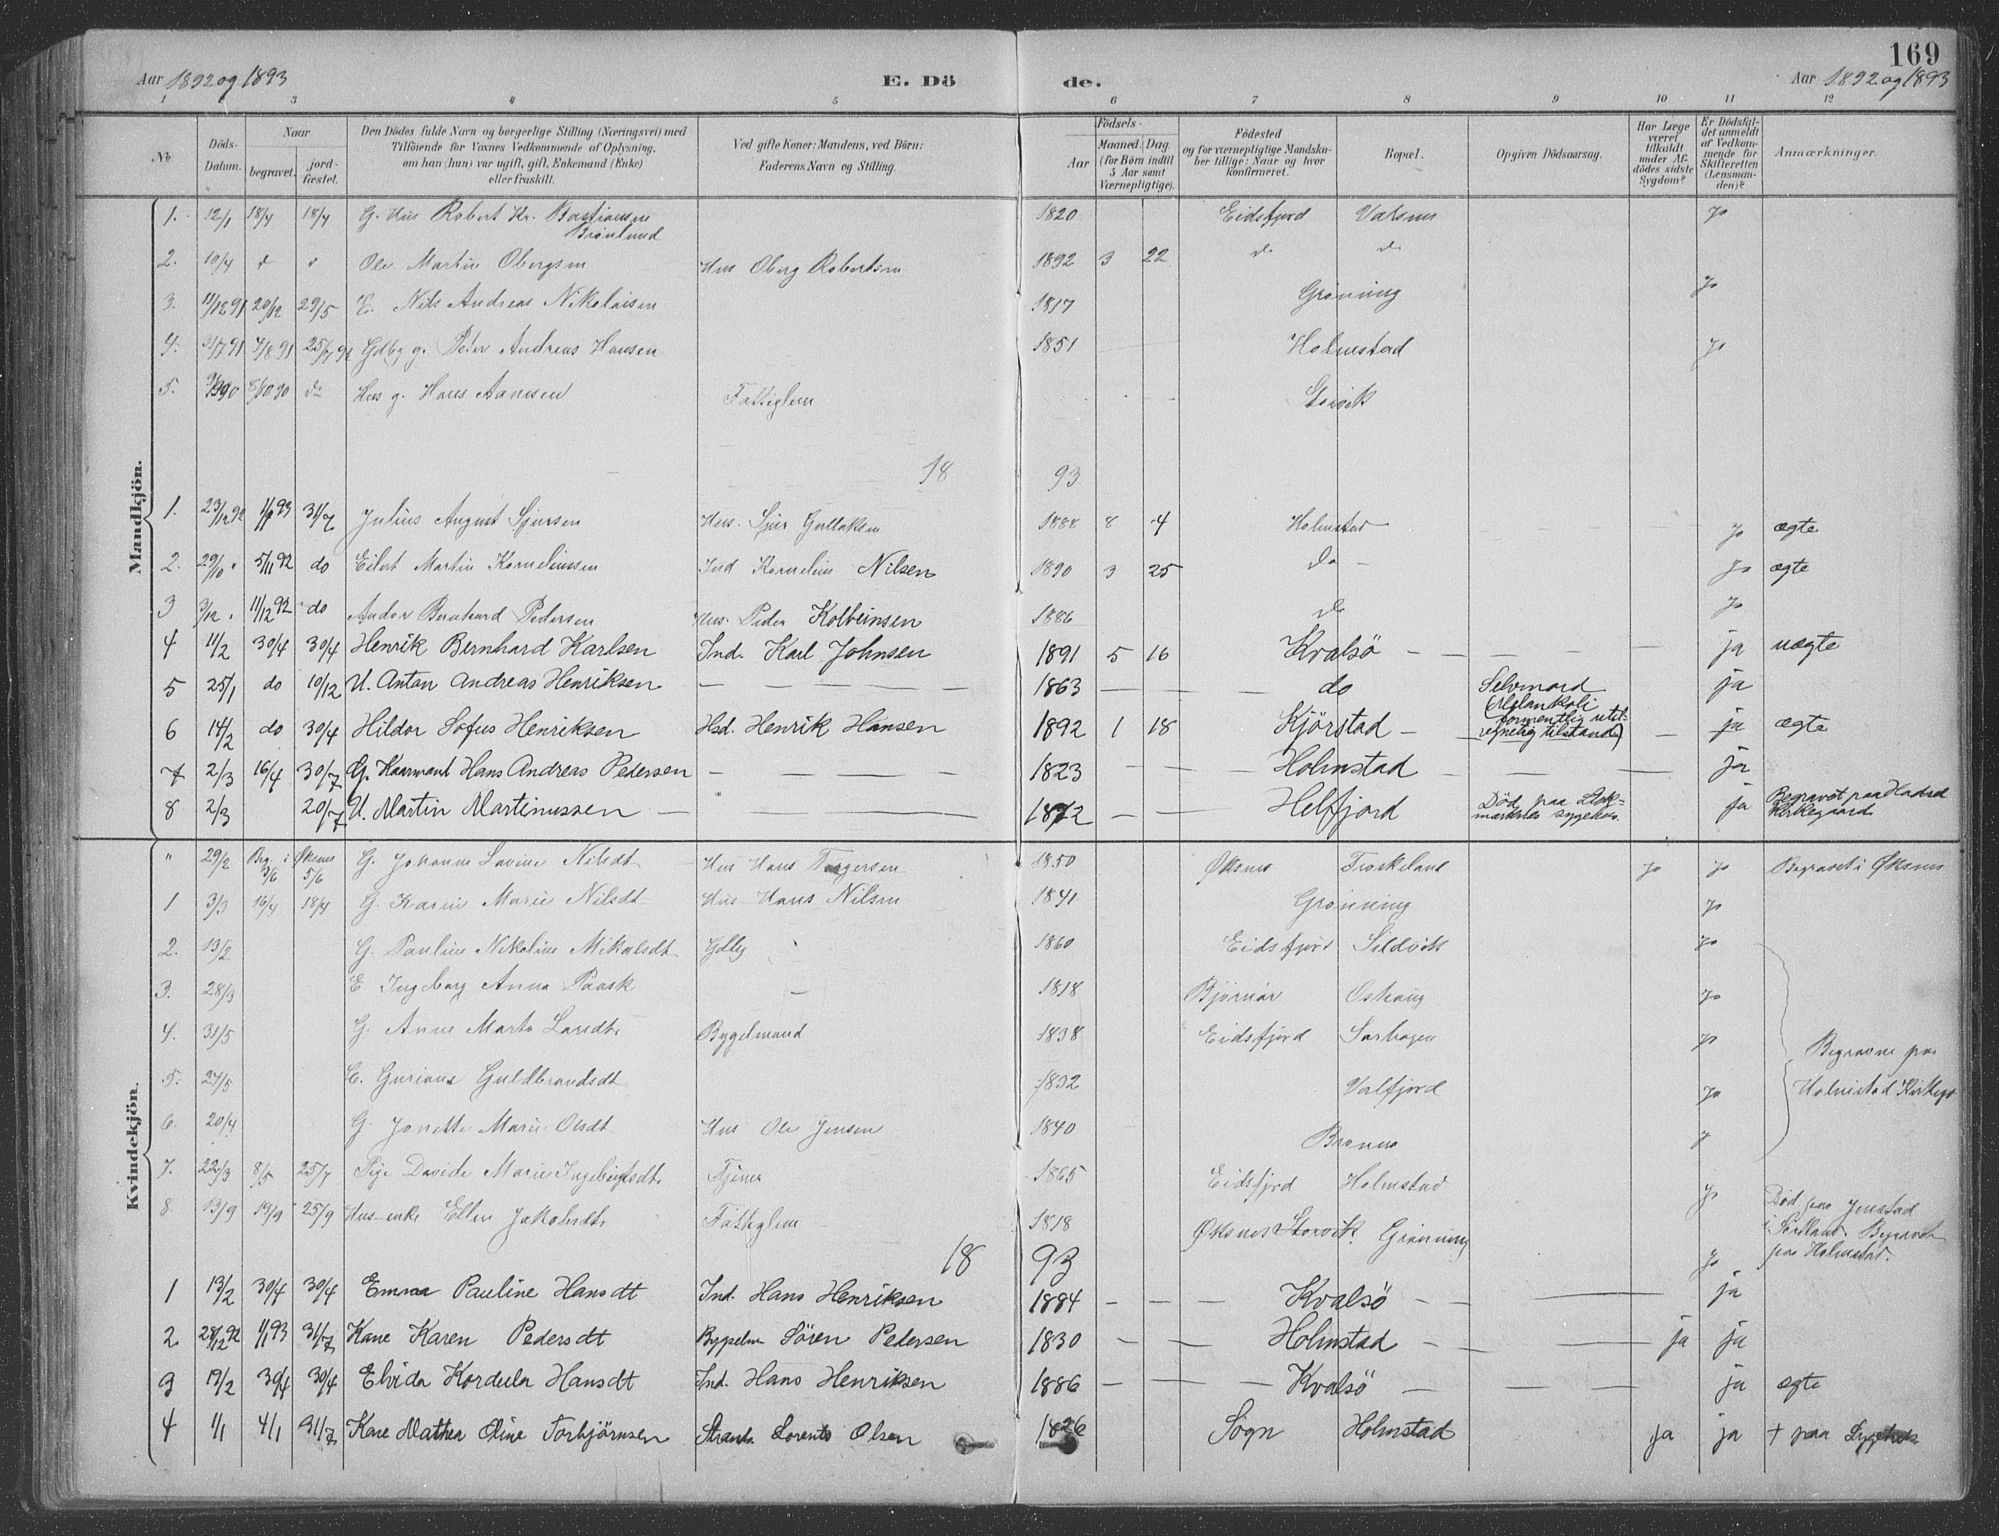 169
Aar 1892 og 1893 E. Dö de. Aar 1892 og 1893
1 3 4 5 6 7 8 9 10 11 12
No
Döds-Datum.
Naar
begravet.
jord-fæstet.
Den Dödes fulde Navn og borgerlige Stilling (Næringsvei) med
Tilföiende for Voxnes Vedkommende af Oplysning,
om han (hun) var ugift, gift, Enkemand (Enke)
eller fraskilt.
Ved gifte Koner: Mandens, ved Börn:
Faderens Navn og Stilling.
Födsels-
Aar
Maaned. Dag.
(for Börn indtil
5 Aar samt
Værnepligtige).
Födested
og for værnepligtige Mandska-
ber tillige: Naar og hvor
konfirmeret.
Bopæl.
Opgiven Dödsaarsag.
Har Læge
været
tilkaldt
under Af-
dödes sidste
Sygdom?
Er Dödsfal-
det anmeldt
af Vedkom-
mende for
Skifteretten
(Lensman-
den)?
Anmærkninger.
Mandkjön.
1. 12/1 18/4 18/4 G. Hus Robert Kr. Bastiansen 1820 Eidsfjord Valsnes Ja
Brönlund
2. 10/4 Ole Martin Obergsen Hus Oberg Robertsen 1892 3 22 do do
3. 20/12 29/5 E. Nils Andreas Nikolaisen 1817 Gröning Ja
4. Gdbg g. Peter Andreas Hansen 1851 Holmstad Ja
5. do Hus g. Hans Fattiglem Storvik
18 93
1. 23/12 92 1/1 93 31/7 Julius August Sjursen Hus. Sjur Gullaksen 1888 8 4 Holmstad Ja ægte
2. 29/10 " 5/11 92 do Eilert Martin Korneliussen Ind Kornelius Nilsen 1890 3 25 do Ja ægte
3 3/12 " 11/12 92 do Andor Bernhard Pedersen Hus. Peder Kolbeinsen 1886 do Ja
4 11/2 30/4 30/4 Henrik Bernhard Karlsen Ind. Karl Johnsen 1891 5 16 Kvalsö ja uægte
5 25/1 do 10/12 U. Anton Andreas Henriksen 1863 do Selvmord ja
(Melankoli
6 14/2 do 30/4 Hildor Sofus Henriksen Hsd. Henrik Hansen 1892 1 18 Kjörstad formentlig util- ja ægte
regnelig tilstand)
7 2/3 16/4 30/7 G. Kaarmand Hans Andreas Pedersen 1823 Holmstad ja
8 2/3 20/7 U. Martin Martinussen 1872 Helfjord Död paa Stok- ja Begravet paa Hadsel
marknes sygehus. Kirkegaard
Kvindekjön.
" 29/2 Beg. i Öksnes G. Johanna Lovise Nilsdt Hus Hans Torgersen 1850 Öksnes Froskeland Ja Ja Begravet i Öksnes
3/6 5/6
1 3/3 16/4 18/4 G. Karen Marie Nilsdt Hus Hans Nilsen 1841 Gröning Ja
2. 13/2 G. Pauline Nikoline Mikalsdt Gdbg 1860 Eidsfjord Sildvik Ja
3. 28/3 E Ingeborg Anna Paask 1818 Björnör Ja
4. 31/5 G. Anne Marta Larsdt Bygselmand 1838 Eidsfjord Ja
5. 24/5 E. Guriane Guldbrandsdt 1832 Valfjord Ja
6. 20/4 G. Jonette Marie Olsdt Hus Ole Jensen 1840
Begravne paa
Holmstad Kirkeg
7. 22/3 8/5 25/7 Pige Davida Marie Ingebrigtsdt. Tjener 1865 Eidsfjord Holmstad Ja
8. 13/9 19/9 25/9 Hus-enke Ellen Jakobsdt. Fattiglem 1818 Öksnes Storvik. Gröning Ja
Död paa Jenstad
i Sortland. Begravet
paa Holmstad.
18 93
1 13/2 30/4 30/4 Emma Pauline Hansdt Ind. Hans Henriksen 1884 Kvalsö ja
2 28/12 92 1/1 93 31/7 Kone Karen Pedersdt Bygselm Sören Pedersen 1830 Holmstad ja ja
3 19/2 30/4 30/4 Elvida Kordula Hansdt Ind. Hans Henriksen 1886 Kvalsö ja ægte
4 1/1 4/1 31/7 Kone Mathea Oline Torbjörnsen Strands Lorents Olsen 1826 Sogn Holmstad ja ja † paa